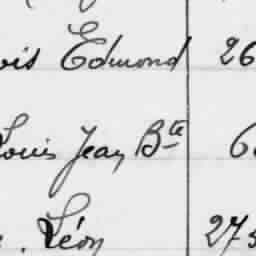 ois Edmond 26
Louis Jean Bte 6
. Léon 275